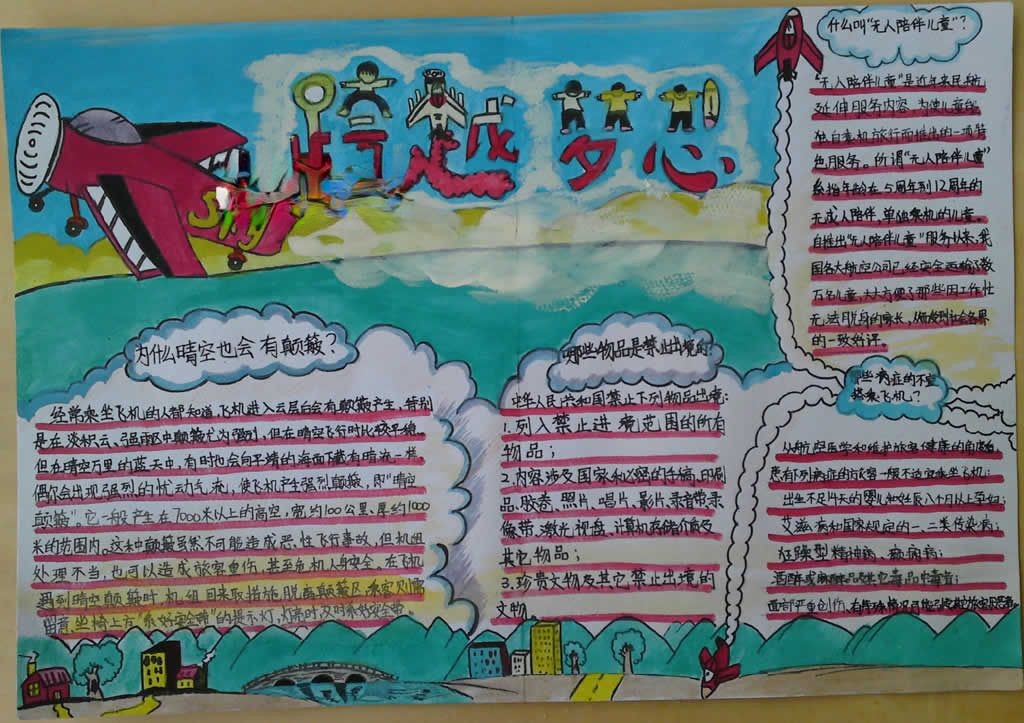 跨越梦想
Sky
什么叫“无人陪伴儿童”?
“无人陪伴儿童”是近年来民航
延伸服务内容,为使儿童能
独自乘机旅行而推出的一项特
色服务。所谓“无人陪伴儿童”
系指年龄在5周年到12周年的
无成人陪伴、单独乘机的儿童。
自推出“无人陪伴儿童”服务以来,我
国各大航空公司已经安全运输了数
万名儿童,大大方便了那些因工作性
无法脱身的家长,颇受到社会各界
的一致好评。
为什么晴空也会有颠簸?
经常乘坐飞机的人都知道,飞机进入云层后会有颠簸产生,特别
是在浓积云、强雨区中颠簸尤为强烈,但在晴空飞行时比较平稳。
但在晴空万里的蓝天中,有时也会向平靖的海面下藏有暗流一样
偶尔会出现强烈的忧动气流,使飞机产生强烈颠簸,即“晴空
颠簸”。它一般产生在7000米以上的高空,宽约100公里、厚约1000
米的范围内。这种颠簸虽然不可能造成恶性飞行事故,但机组
处理不当,也可以造成旅客重伤,甚至危机人身安全。在飞机
遇到晴空颠簸时,机组回采取措施,脱离颠簸区,乘客则需
留意坐椅上方“系好安全带”的提示灯,灯亮时及时系好安全带。
哪些物品是禁止出境的?
中华人民共和国禁止下列物品出境:
1.列入禁止进境范围的所有
物品;
2.内容涉及国家和必密的手稿、印刷
品、胶卷、照片、唱片、影片、录音带、录
像带、激光视盘、计算机存储介质及
其它物品;
3.珍贵文物及其它禁止出境的
文物。
些病症的不宜
搭乘飞机?
从航空医学和维护旅客健康的角度看
患有列病症的旅客一般不适宜乘坐飞机:
出生不足14天的婴儿和妊娠八个月以上孕妇;
艾滋病和国家规定的一、二类传染病;
狂躁型精神病、癫痫病;
酒醉或麻醉品及其它毒品中毒者;
面部严重创伤,有特殊情况可能